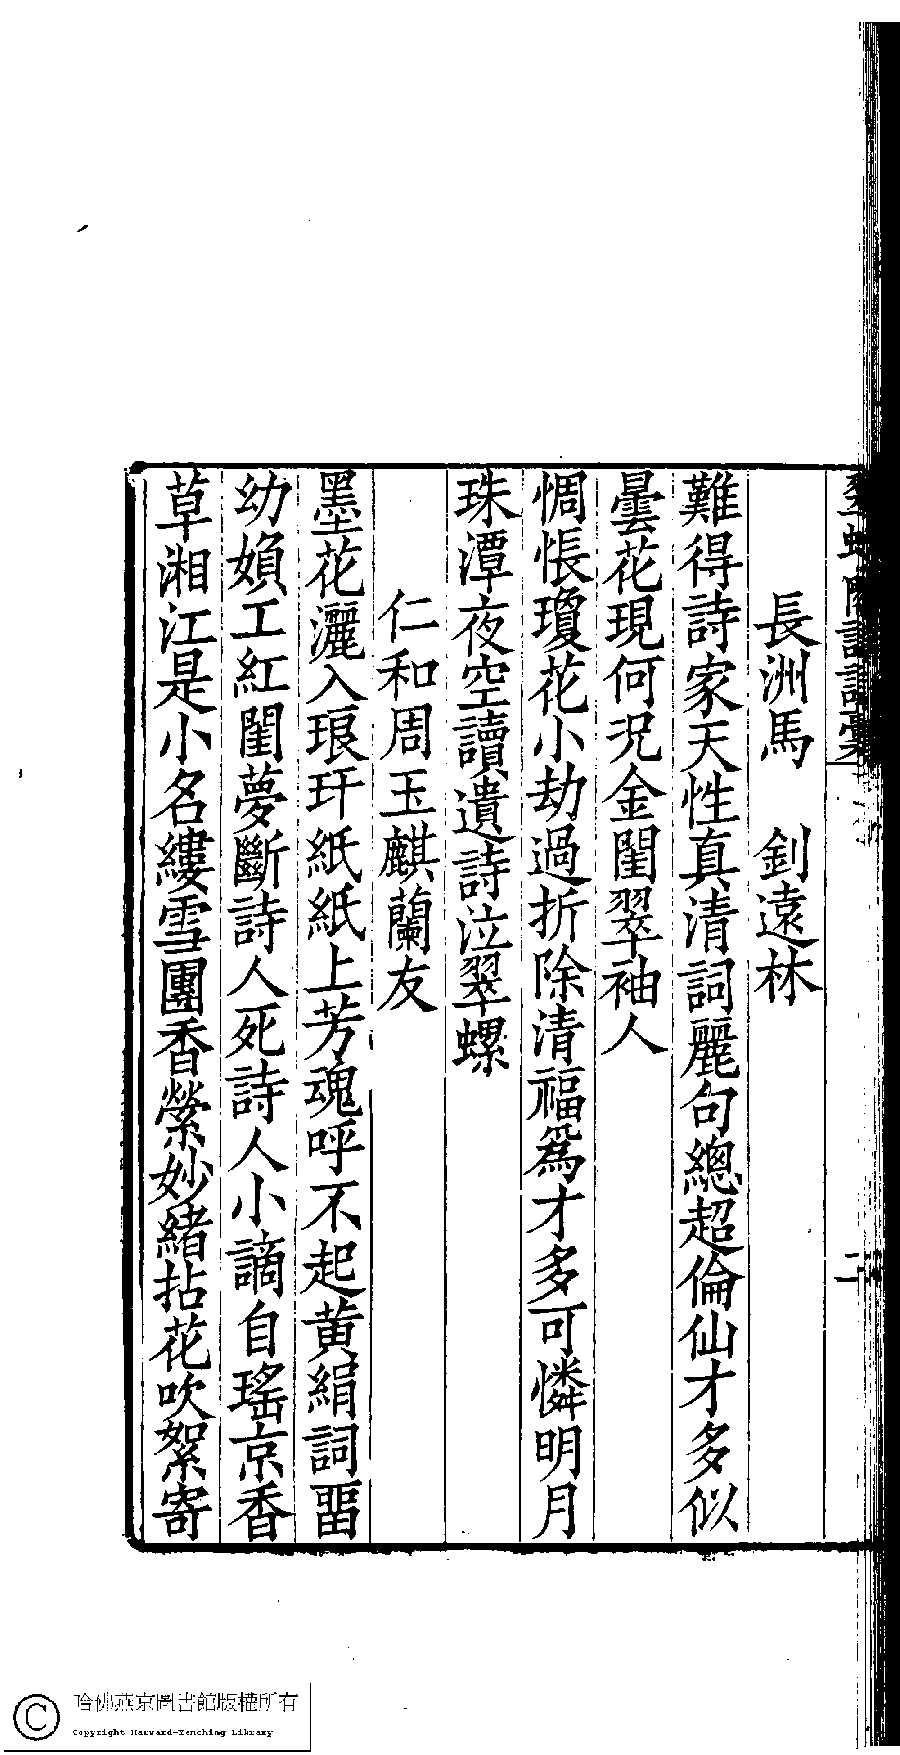 翠螺閣詩詞稾
二
長洲馬　釗遠林
難得詩家天性真清詞麗句總超倫仙才多似
曇花現何況金閨翠袖人
惆悵瓊花小劫過折除清福爲才多可憐明月
珠潭夜空讀遺詩泣翠螺
仁和周玉麒蘭友
墨花灑入琅玕紙紙上芳魂呼不起黄絹詞畱
幼媍工紅閨夢斷詩人死詩人小謫自瑤京香
草湘江是小名縷雪團香縈妙緒拈花吹絮寄
哈佛燕京圖書館版權所有
Copyright Harvard-Yenching Library